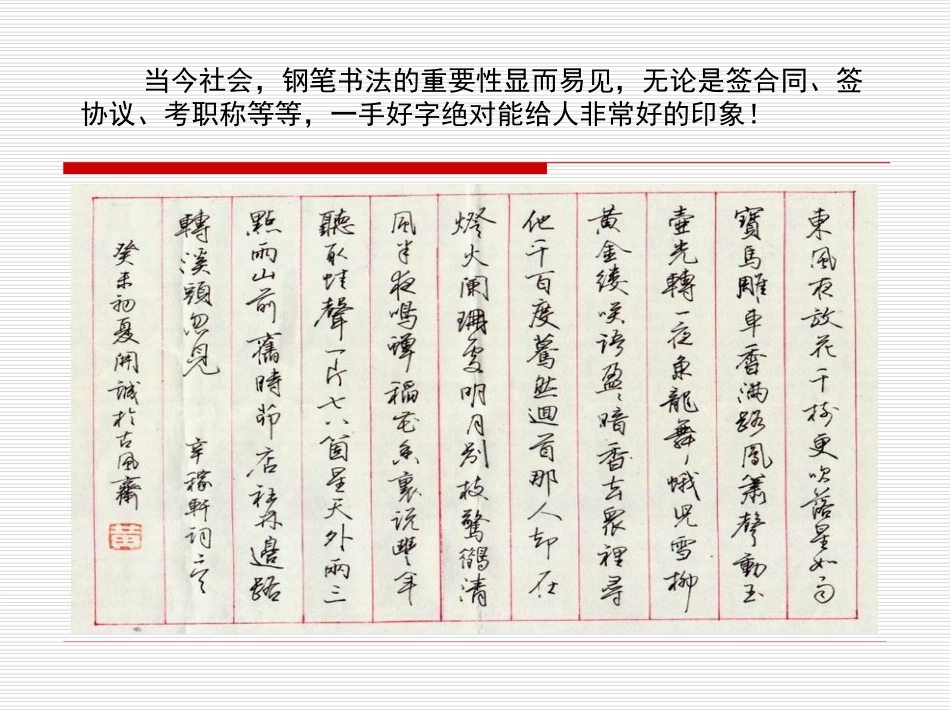 当今社会，钢笔书法的重要性显而易见，无论是签合同、签
协议、考职称等等，一手好字绝对能给人非常好的印象！
東風夜放花千樹更吹落星如雨
寶馬雕車香滿路鳳簫聲動玉
壺光轉一夜魚龍舞蛾兒雪柳
黃金縷笑語盈〻暗香去眾裡尋
他千百度驀然迴首那人却在
燈火闌珊處明月别枝驚鵲清
風半夜鳴蟬稻花香裏说豐年
聽取蛙聲一片七八箇星天外兩三
點雨山前舊時茆店社林邊路
轉溪頭忽見 辛稼軒詞二首
癸未初夏開誠於古風齋
黄